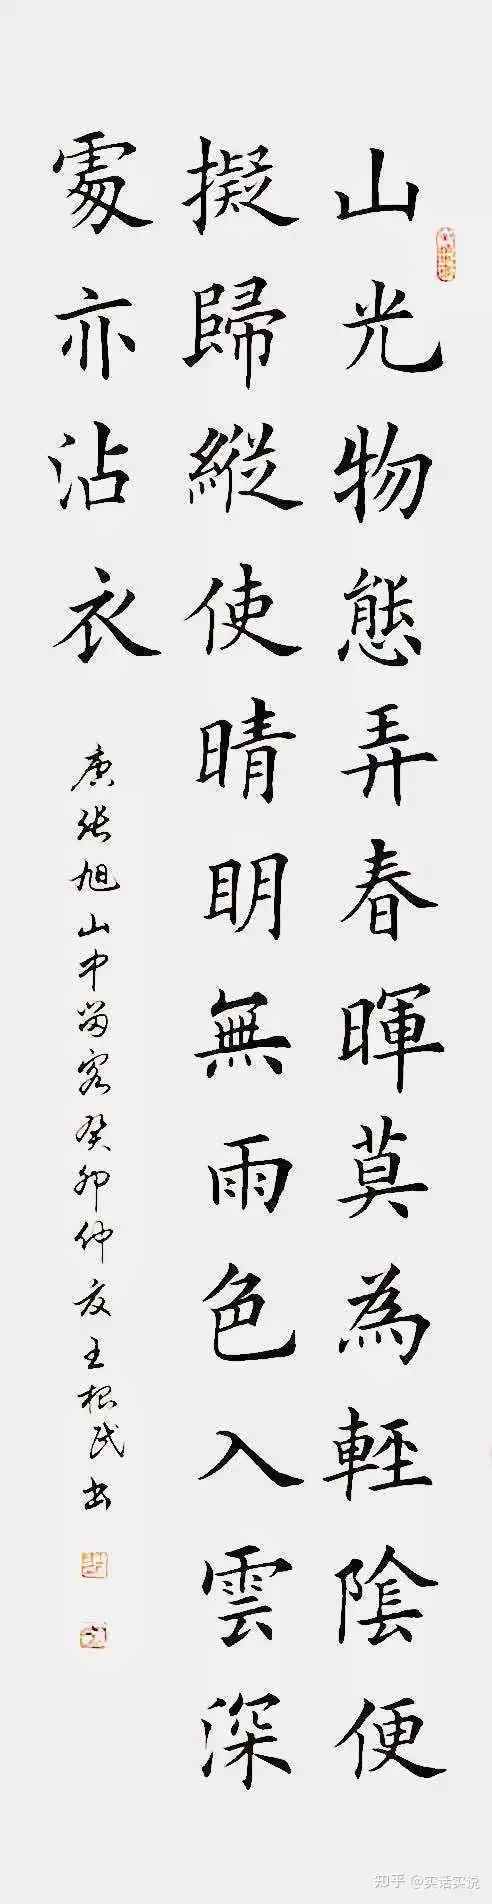 山光物態弄春暉莫為輕陰便
擬歸縱使晴明無雨色入雲深
處亦沾衣
唐张旭山中留客癸卯仲夏王根民书
知乎 @实话实说